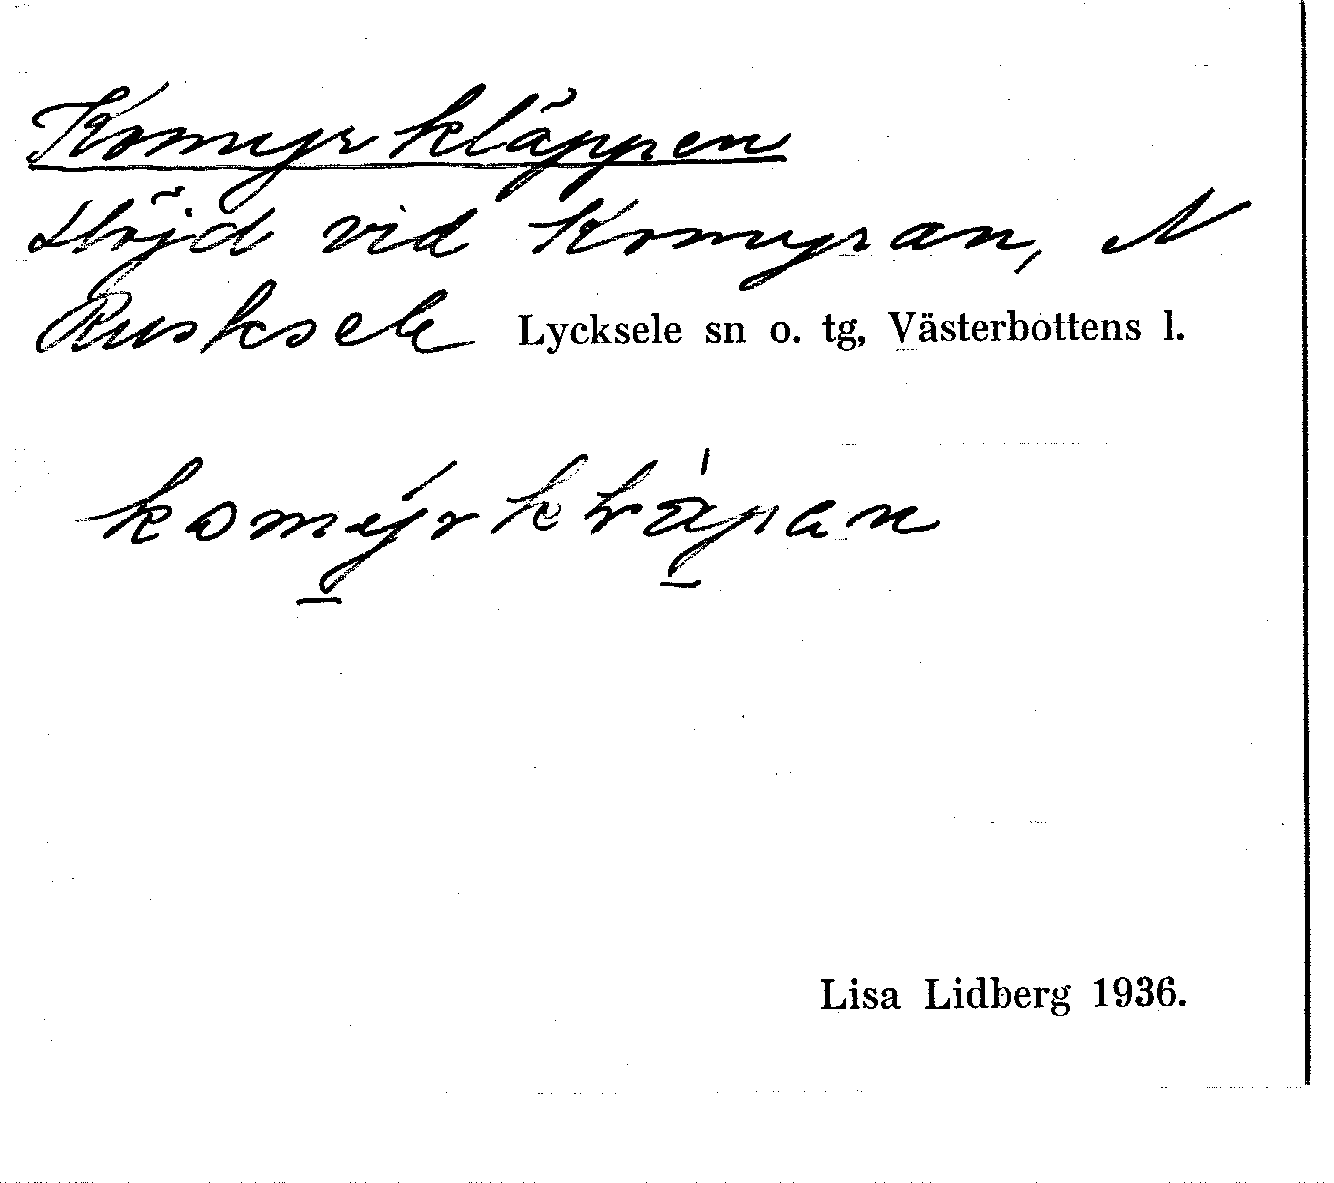 Komyrkläppen
Höjd vid Komyran, N
Rusksele Lycksele sn o. tg, Västerbottens l.
Lisa Lidberg 1936.